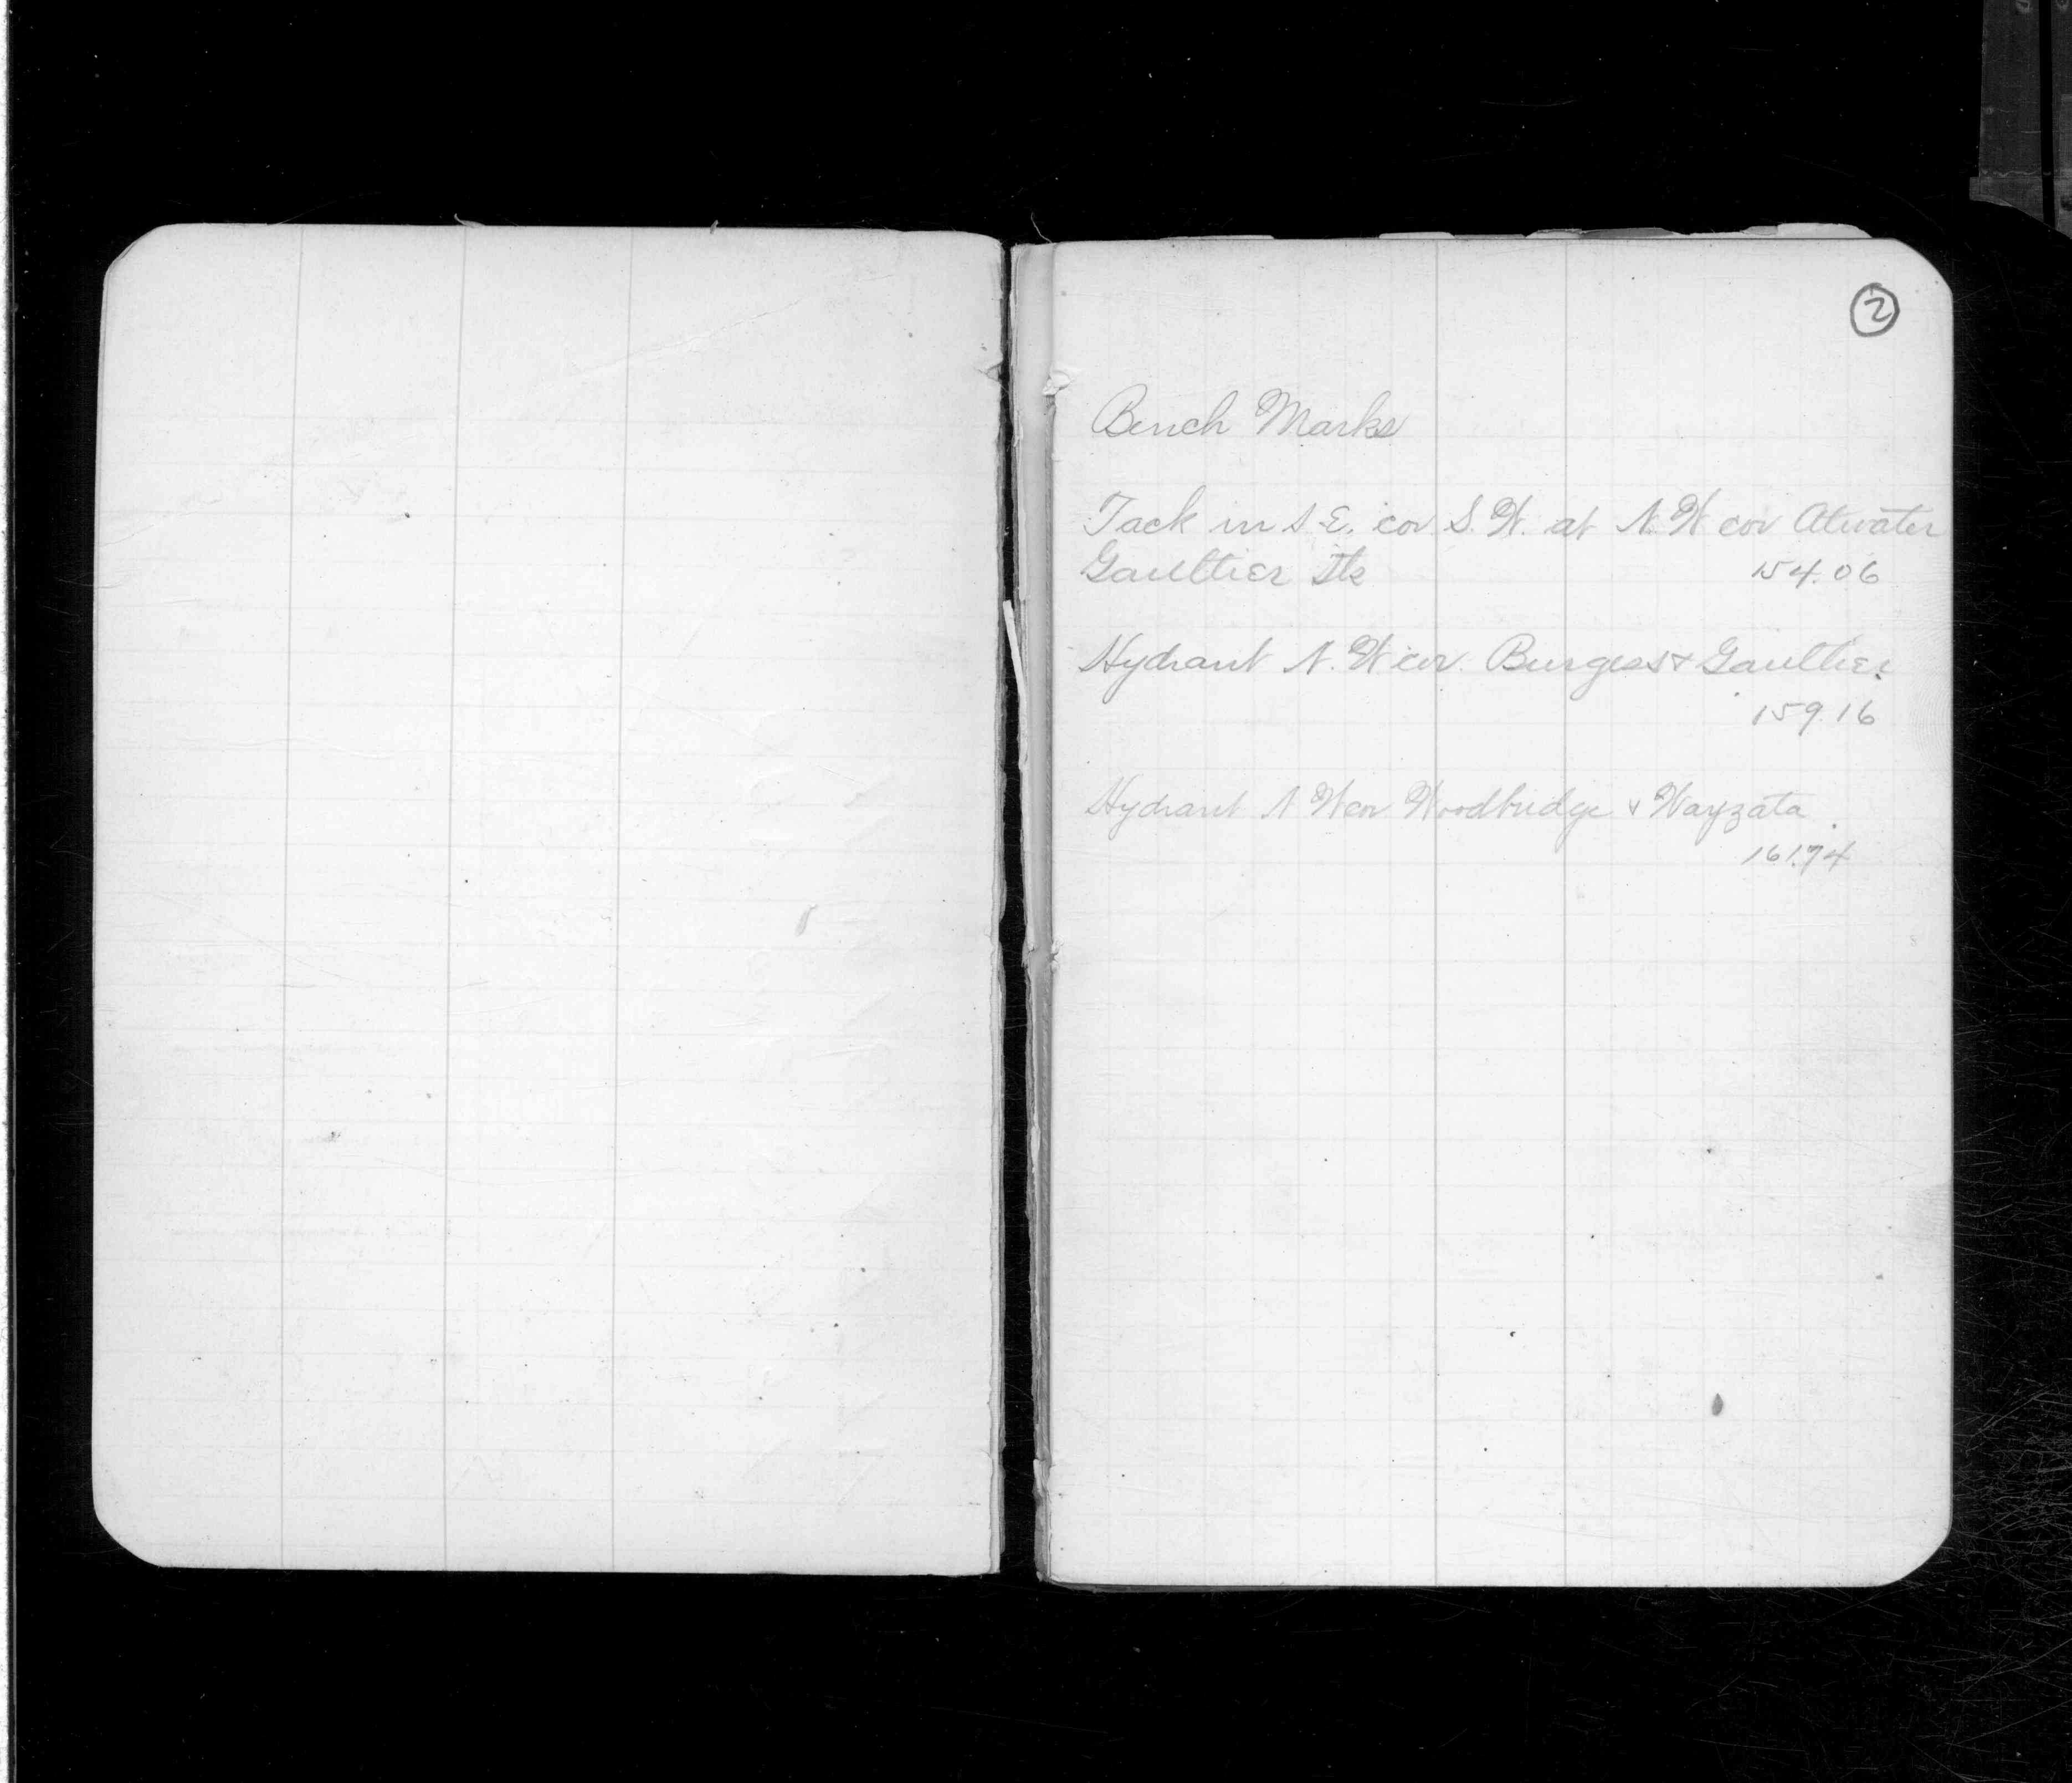 2
Bench Marks
Tack in S.E. cor S.W. at N.W cor Atwater
Gaultier Sts 154.06
Hydrant N.W. cor. Burgess & Gaultier.
159.16
Hydrant N W cor Woodbridge & Wayzata
161.74